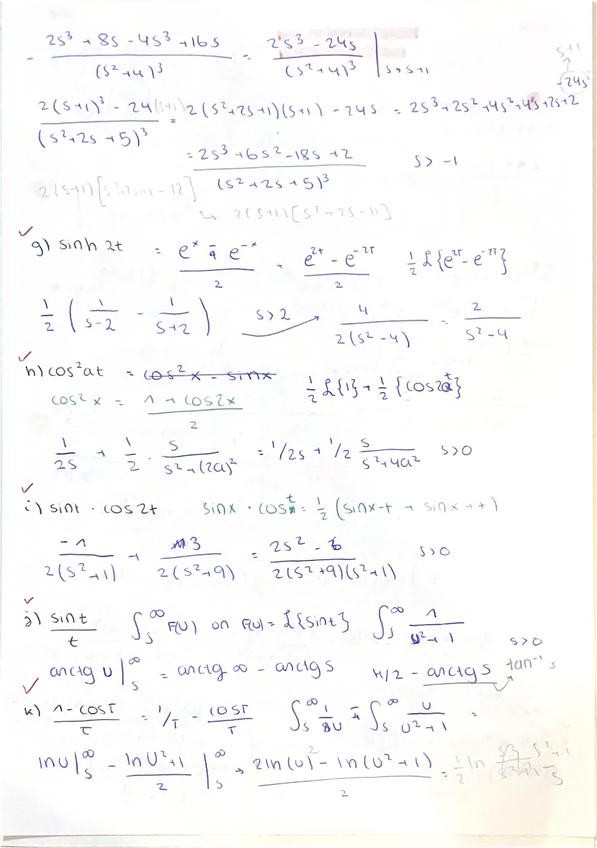 - (2s³ + 8s - 4s³ + 16s)/(s²+4)³ = (2s³ - 24s)/(s²+4)³ |s→s+1
s+1
↑
-24s
(2(s+1)³ - 24(s+1))/(s²+2s+5)³ = 2(s²+2s+1)(s+1) - 24s = 2s³+2s²+4s²+4s+2s+2
= (2s³+6s²-18s+2)/(s²+2s+5)³ s > -1
2(s+1)[s²+2s+1-12]
↳ 2(s+1)[s²+2s-11]
✓
g) sinh 2t = (eˣ - e⁻ˣ)/2 = (e²ᵗ - e⁻²ᵗ)/2 ½ ℒ{e²ᵗ - e⁻²ᵗ}
½ (1/(s-2) - 1/(s+2)) s>2 → 4/(2(s²-4)) = 2/(s²-4)
✓
h) cos²at = cos²x - sinx ½ ℒ{1} + ½ {cos2at}
cos²x = (1+cos2x)/2
1/2s + ½ · s/(s²+(2a)²) = 1/2s + 1/2 s/(s²+4a²) s>0
✓
i) sint · cos2t sinx · cost = ½ (sinx-t + sinx+t)
-1/(2(s²+1)) + 3/(2(s²+9)) = (2s² - 6)/(2(s²+9)(s²+1)) s>0
✓
j) sint/t ∫ₛ^∞ F(u) on F(u) = ℒ{sint} ∫ₛ^∞ 1/(u²+1) s>0
arctg u |ₛ^∞ = arctg ∞ - arctg s π/2 - arctg s tan⁻¹ s
✓
k) (1-cosT)/T = 1/T - cosT/T ∫ₛ^∞ 1/u - ∫ₛ^∞ u/(u²+1) =
lnu |ₛ^∞ - (lnu²+1)/2 |ₛ^∞ → (2ln(u)² - ln(u²+1))/2 = ½ ln